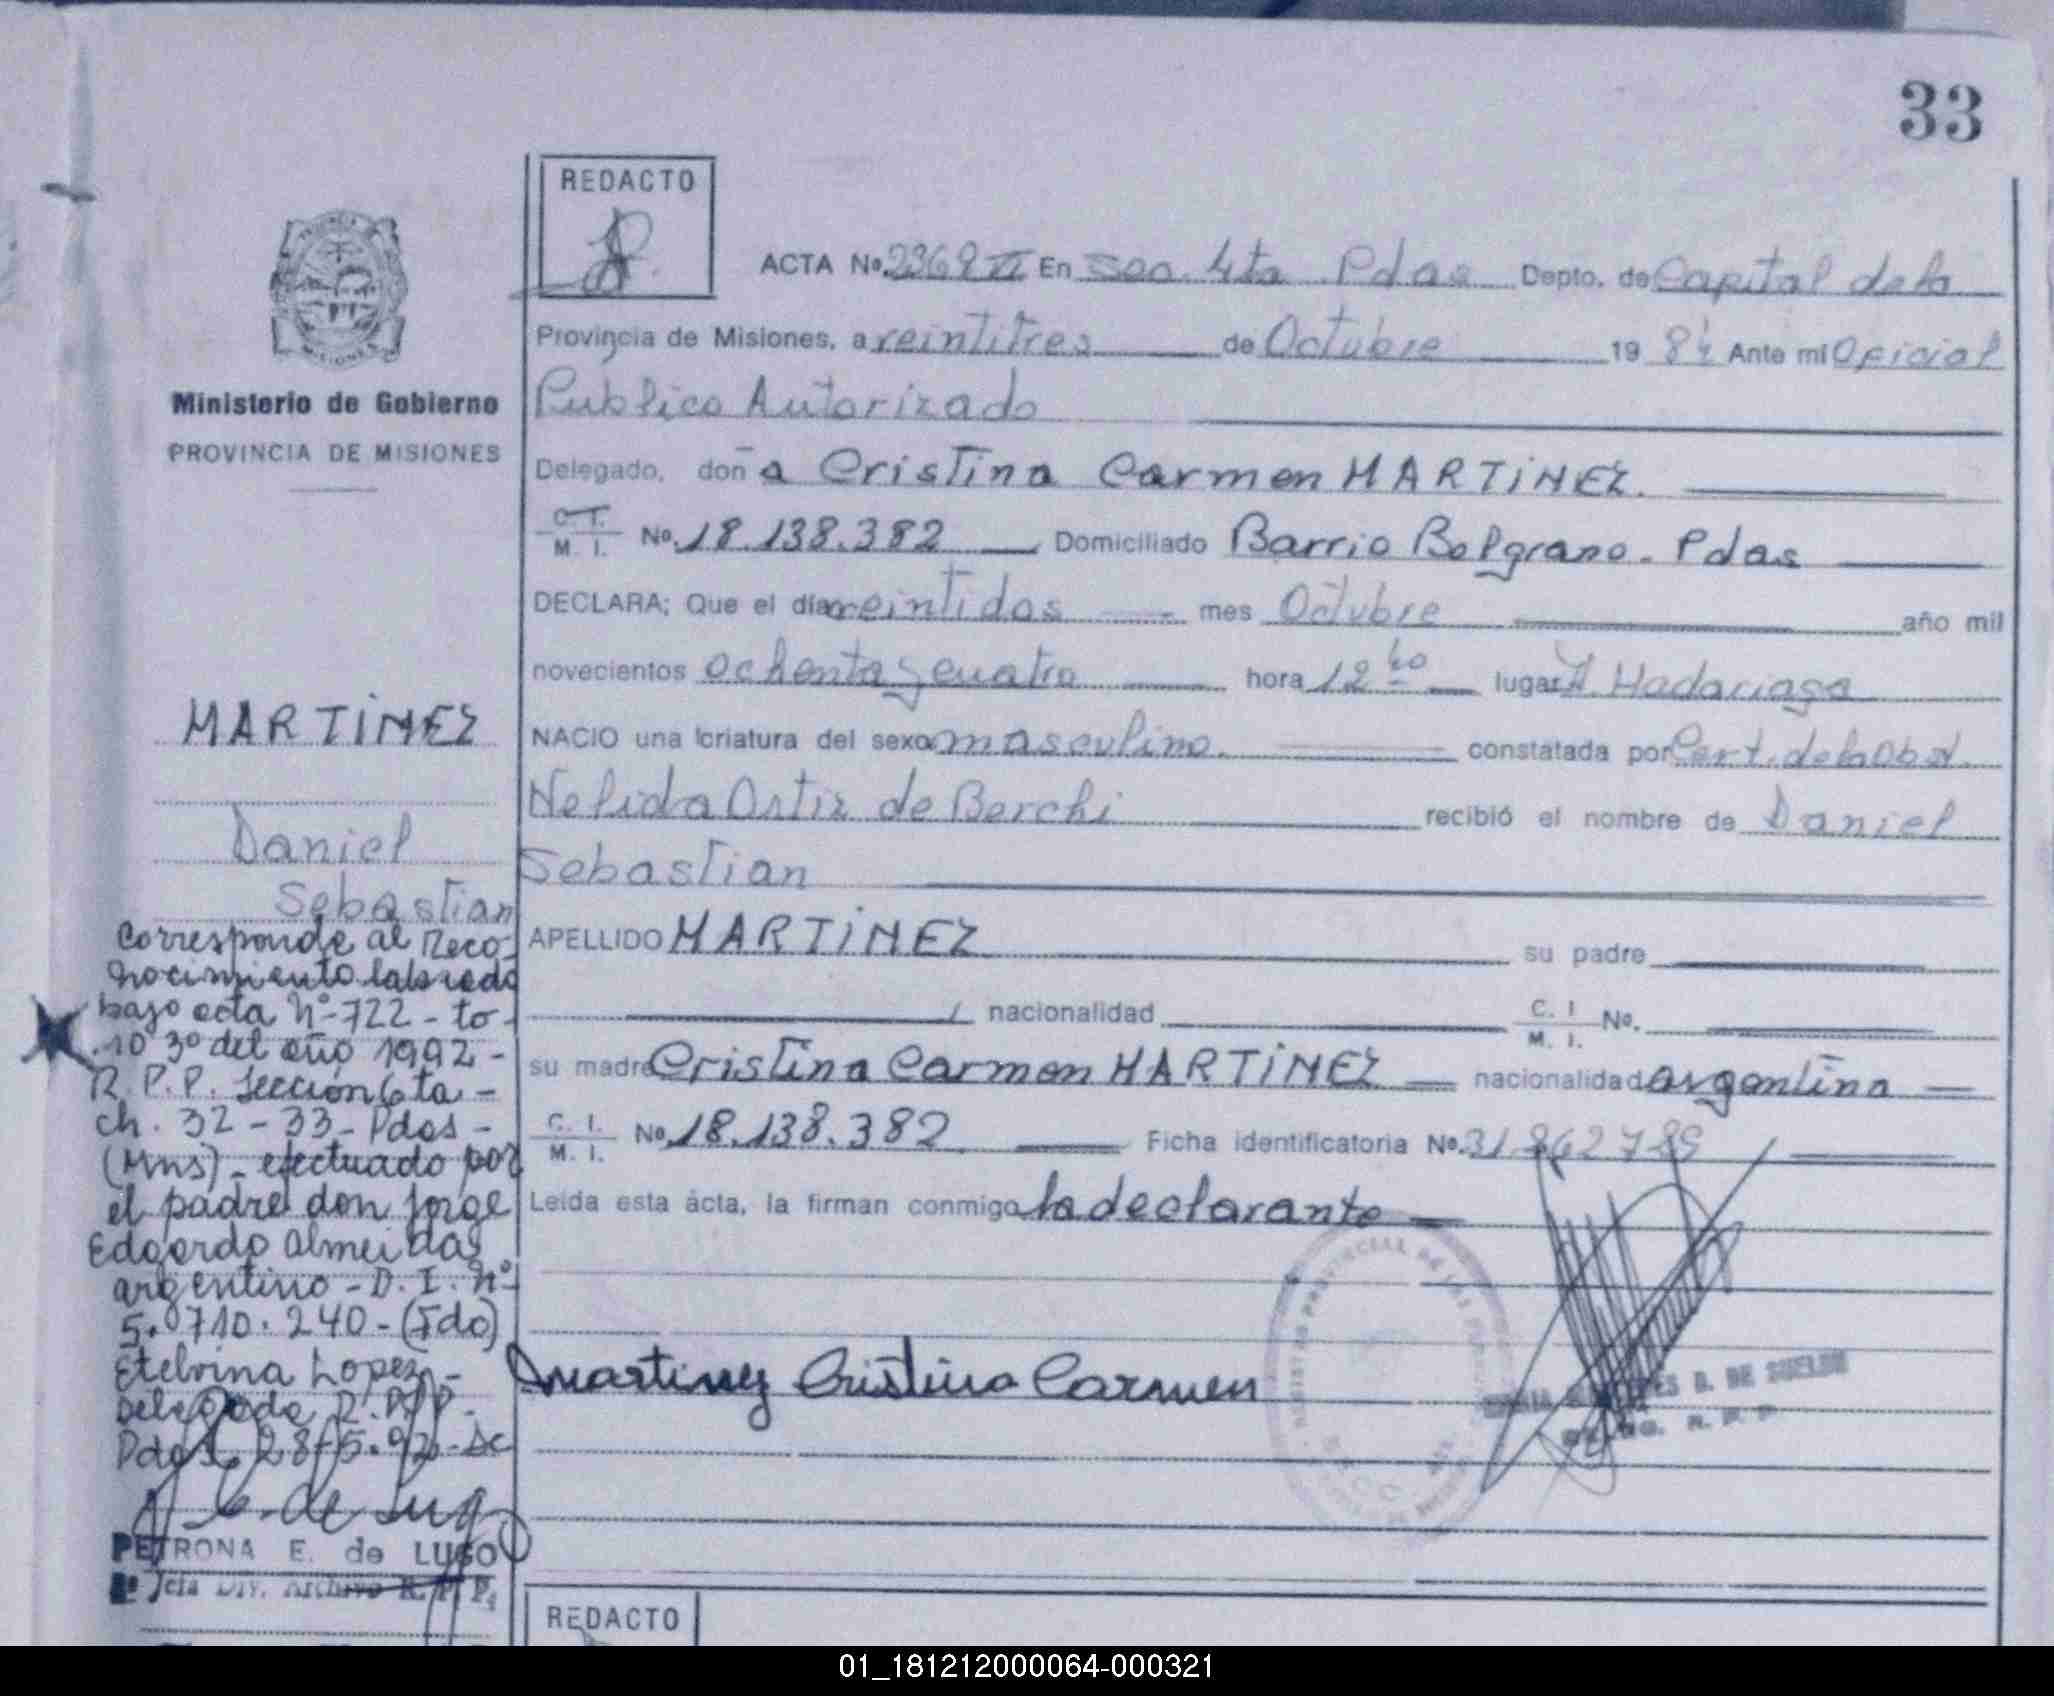 33
REDACTO
ACTA No. 2369 VI En Sec. 4ta Pdas Depto. de Capital de la
Provincia de Misiones, a veintitres de Octubre 19 84 Ante mi Oficial
Publico Autorizado
Delegado, don̄ a Cristina Carmen MARTINEZ.
C. I. M. I. No. 18.138.382 Domiciliado Barrio Belgrano. Pdas
DECLARA; Que el día veintidos mes Octubre año mil
novecientos ochenta y cuatro hora 12 lugar H. Madariaga
NACIO una criatura del sexo masculino. constatada por Cert. de la Obst.
Nelida Ortiz de Berchi recibió el nombre de Daniel
Sebastian
APELLIDO MARTINEZ su padre
nacionalidad C. I. M. I. No.
su madre Cristina Carmen MARTINEZ nacionalidad argentina
C. I. M. I. No. 18.138.382. Ficha identificatoria No. 31.862789
Leída esta ácta, la firman conmigo la declarante
Martinez Cristina Carmen
DE SUELDO
R. P. P.
Ministerio de Gobierno
PROVINCIA DE MISIONES
MARTINEZ
Daniel
Sebastian
Corresponde al Reco-
nocimiento labrado
bajo acta Nº 722 - to-
.10 3º del año 1992 -
R. P. P. Sección 6ta -
ch. 32 - 33 - Pdas -
(Mns) - efectuado por
el padre don Jorge
Edgardo Almeida
argentino - D. I. Nº
5.710.240 - (Fdo)
Etelvina Lopez -
Delegada R. P. P. -
Pdas. 28-5-92 - Ac
PETRONA E. de LUGO
Jefa Div. Archivo R. P. P.
REDACTO
01_181212000064-000321